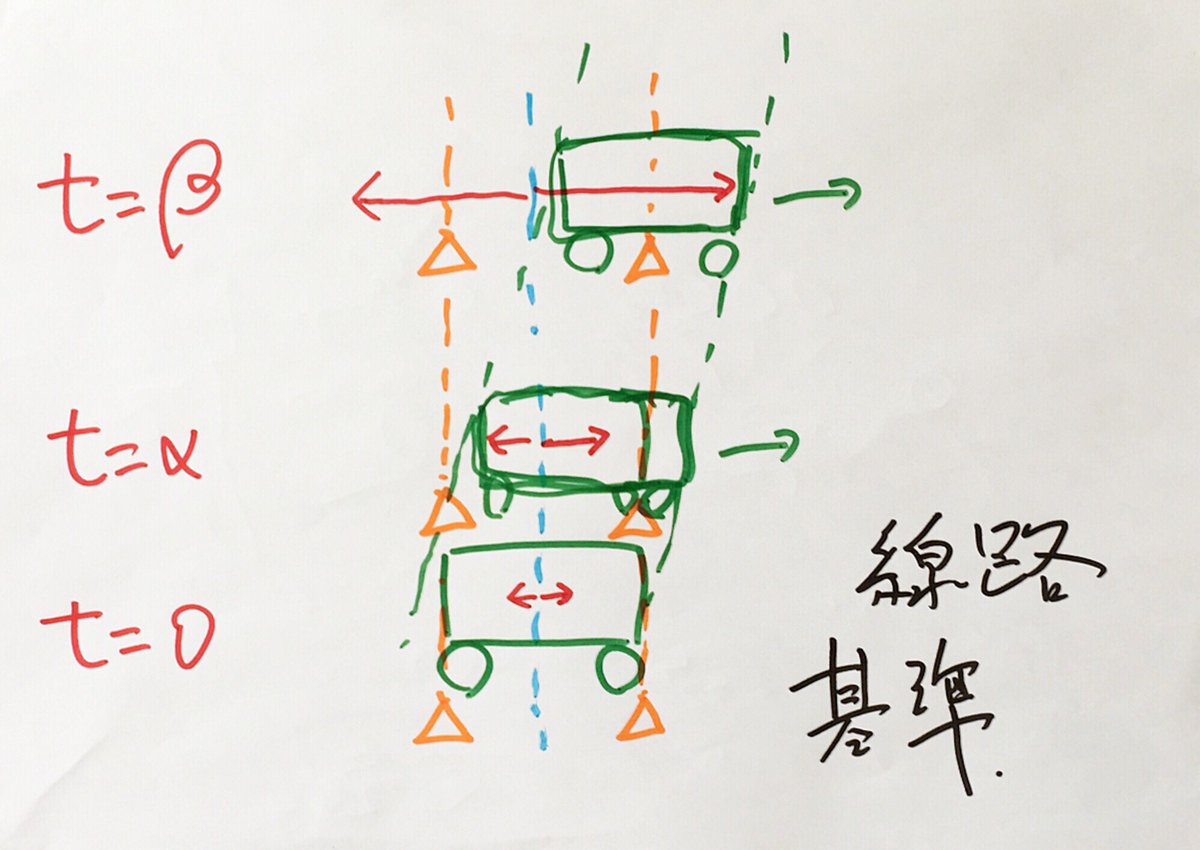 t=β
t=α
t=0
線路
基準.